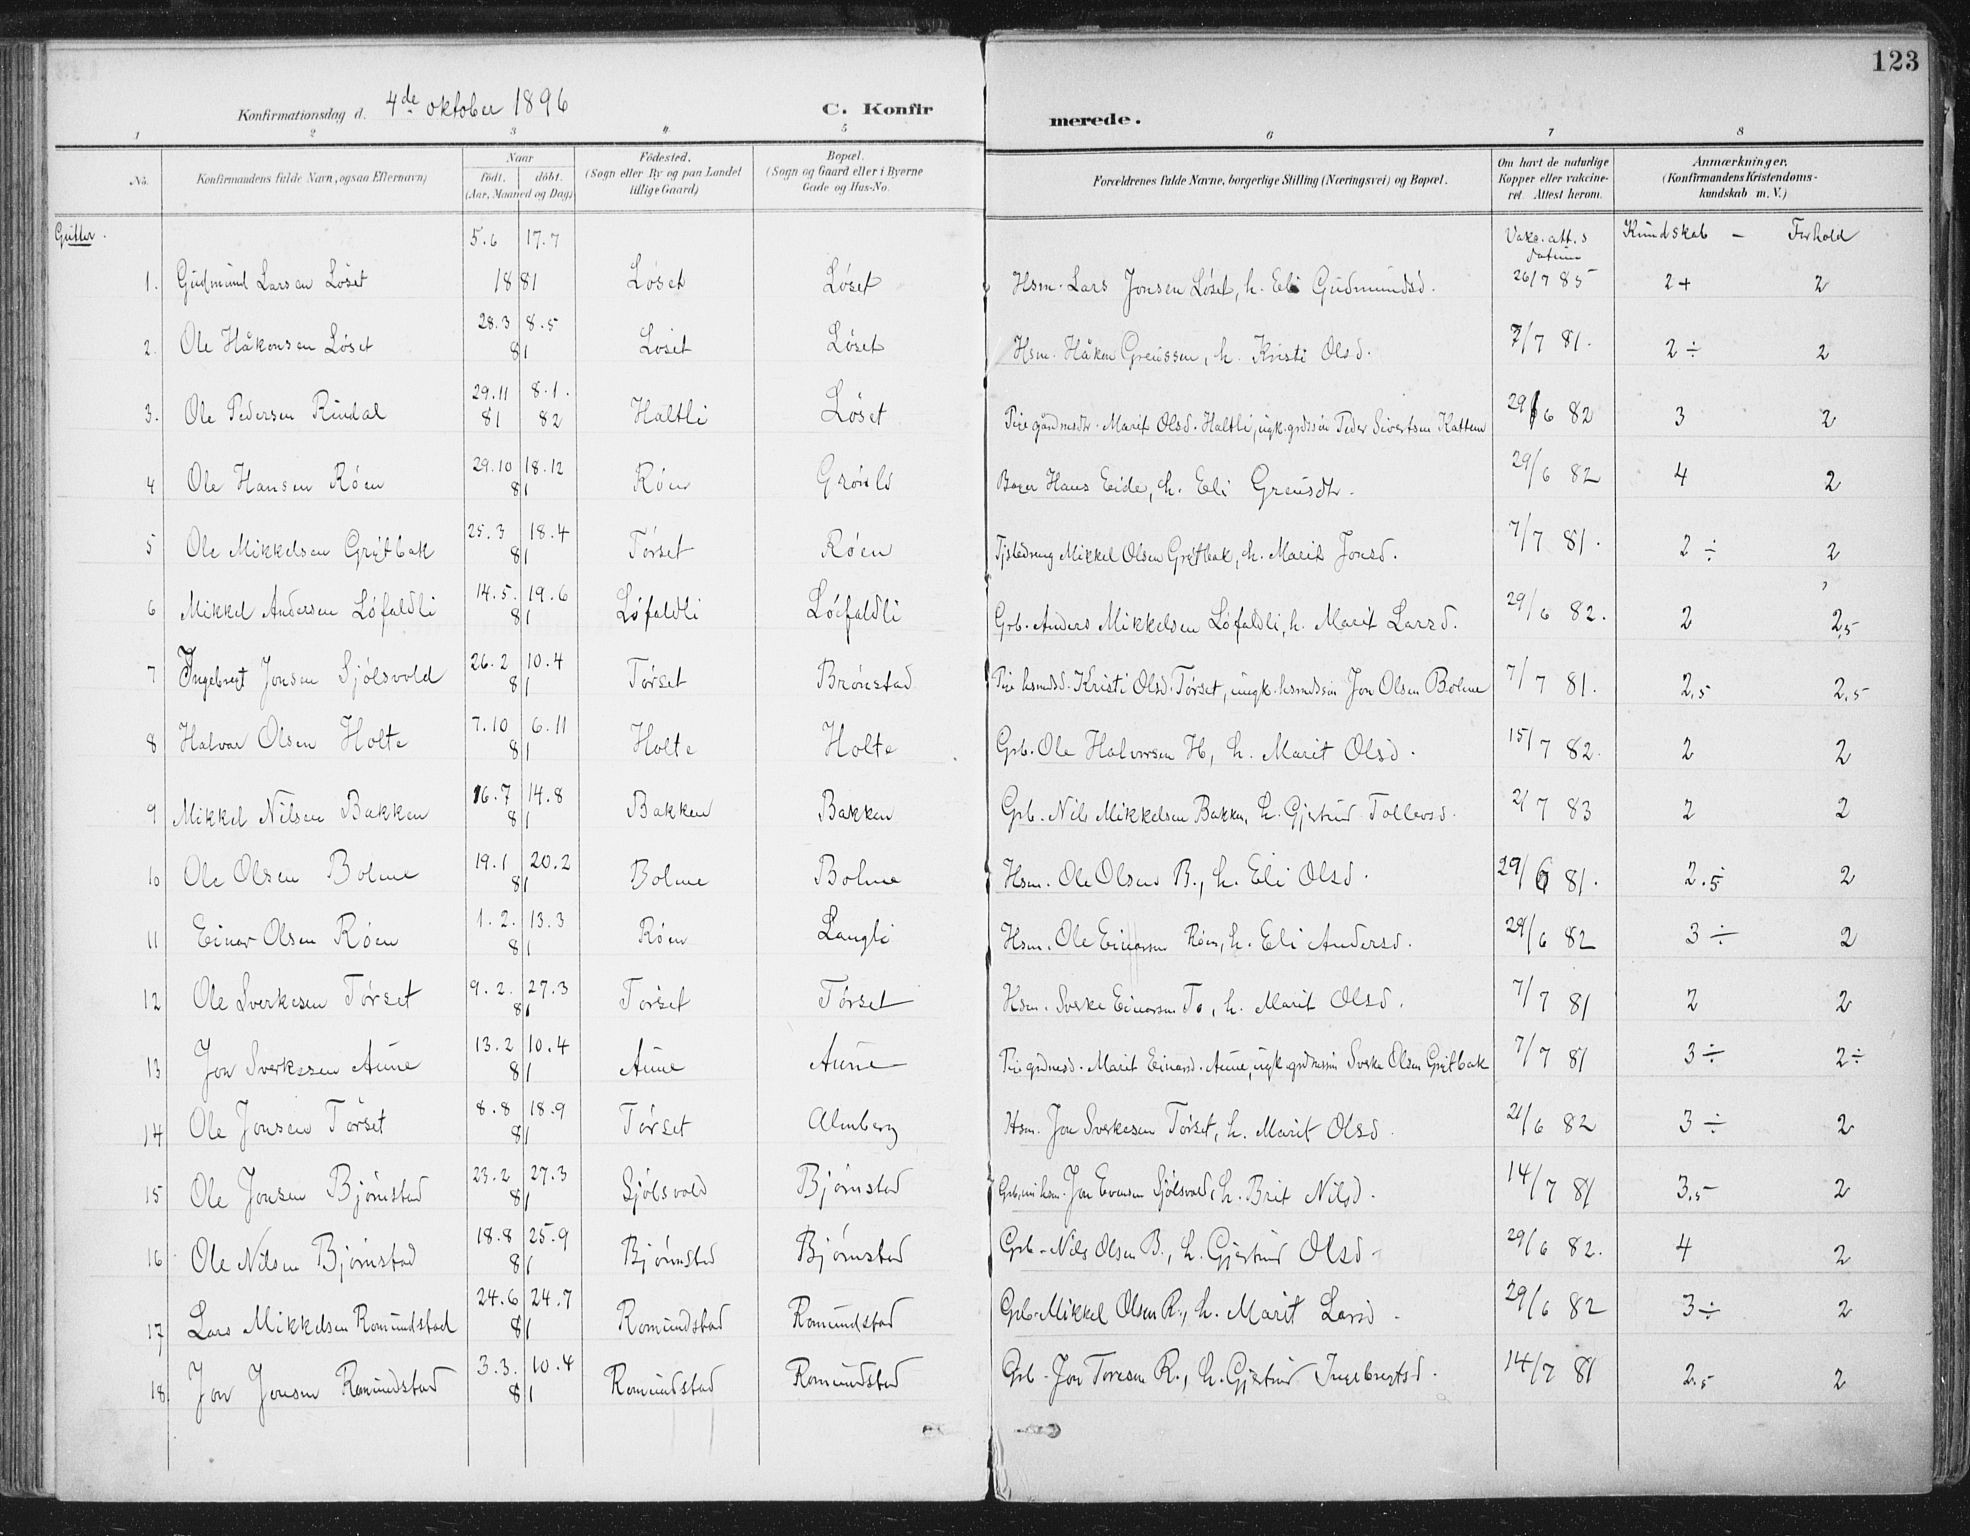 123
Konfirmationsdag d. 4de oktober 1896 C. Konfirmerede.
1 2 3 4 5 6 7 8
No. Konfirmandens fulde Navn, ogsaa Efternavn) Naar født. døbt. (Aar, Maaned og Dag) Fødested. (Sogn eller By og paa Landet tillige Gaard) Bopæl. (Sogn og Gaard eller i Byerne Gade og Hus-No. Forældrenes fulde Navne, borgerlige Stilling (Næringsvei) og Bopæl. Om havt de naturlige Kopper eller vakcineret. Attest herom. Anmærkninger. (Konfirmandens Kristendomskundskab m. V.)
Gutter. Vakc. att.s datum Kundskab – Forhold
1. Gudmund Larsen Løset 5.6 17.7 1881 Løset Løset Hsm. Lars Jonsen Løset, h. Eli Gudmundsd. 26/7 85 2+ 2
2. Ole Håkonsen Løset 28.3 8.5 81 Løset Løset Hsm. Håken Greussen, h. Kristi Olsd. 7/7 81. 2÷ 2
3. Ole Pedersen Rindal 29.11 81 8.1. 82 Haltli Løset Pige gårdmsdtr. Marit Olsd. Haltli, ugk. grdssøn Peder Sivertsen Kattem 29/6 82 3 2
4 Ole Hansen Røen 29.10 18.12 81 Røen Grønli Bager Hans Eide, h. Eli Greusdtr. 29/6 82 4 2
5 Ole Mikkelsen Grytbak 25.3 18.4 81 Tørset Røen Mikkel Olsen Grytbak, h. Marit Jonsd. 7/7 81. 2÷ 2
6 Mikkel Andersen Løfaldli 14.5. 19.6 81 Løfaldli Løfaldli Grb. Anders Mikkelsen Løfaldli, h. Marit Larsd. 29/6 82. 2 2,5
7 Ingebregt Jonsen Sjølsvold 26.2 10.4 81 Tørset Brønstad Pige hsmdsd. Kristi Olsd. Tørset, ungk. hsmdssøn Jon Olsen Bolme 7/7 81. 2,5 2,5
8 Halvar Olsen Holte 7.10 6.11 81 Holte Holte Grb. Ole Halvorsen H, h. Marit Olsd. 15/7 82. 2 2
9 Mikkel Nilsen Bakken 16.7 14.8 81 Bakken Bakken Grb. Nils Mikkelsen Bakken, h. Gjertrud Tollevsd. 2/7 83 2 2
10 Ole Olsen Bolme 19.1 20.2 81 Bolme Bolme Hsm. Ole Olsen B., h. Eli Olsd. 29/6 81. 2.5 2
11 Einar Olsen Røen 1.2. 13.3 81 Røen Langli Hsm. Ole Einarsen Røen, h. Eli Andersd. 29/6 82 3÷ 2
12 Ole Sverkesen Tørset 9.2. 27.3 81 Tørset Tørset Hsm. Sverke Einarsen Tø, h. Marit Olsd. 7/7 81 2 2
13 Jon Sverkesen Aune 13.2 10.4 81 Aune Aune Pige grdmsd. Marit Einarsd. Aune, ugk. grdmssøn Sverke Olsen Grytbak 7/7 81 3÷ 2÷
14 Ole Jonsen Tørset 8.8 18.9 81 Tørset Almberg Hsm. Jon Sverkesen Tørset, h. Marit Olsd. 21/6 82 3÷ 2
15 Ole Jonsen Bjørnstad 23.2 27.3 81 Sjølsvold Bjørnstad Jon Evensen Sjølsvold, h. Brit Nilsd. 14/7 81 3.5 2
16 Ole Nilsen Bjørnstad 18.8 25.9 81 Bjørnstad Bjørnstad Grb. Nils Olsen B., h. Gjertrud Olsd. 29/6 82. 4 2
17 Lars Mikkelsen Romundstad 24.6 24.7 81 Romundstad Romundstad Grb. Mikkel Olsen R., h. Marit Larsd. 29/6 82 3÷ 2
18. Jon Jonsen Romundstad 3.3. 10.4 81 Romundstad Romundstad Grb. Jon Toresen R., h. Gjertrud Ingebregtsd. 14/7 81 2,5 2